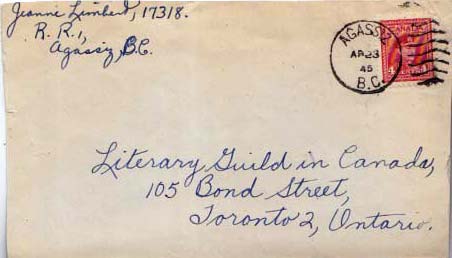 Jeanne Limbert, 17318.
R. R. 1,
Agassiz, B.C.
AGASSIZ
AP 23
45
B.C.
CANADA
4
Literary Guild in Canada,
105 Bond Street,
Toronto 2, Ontario.